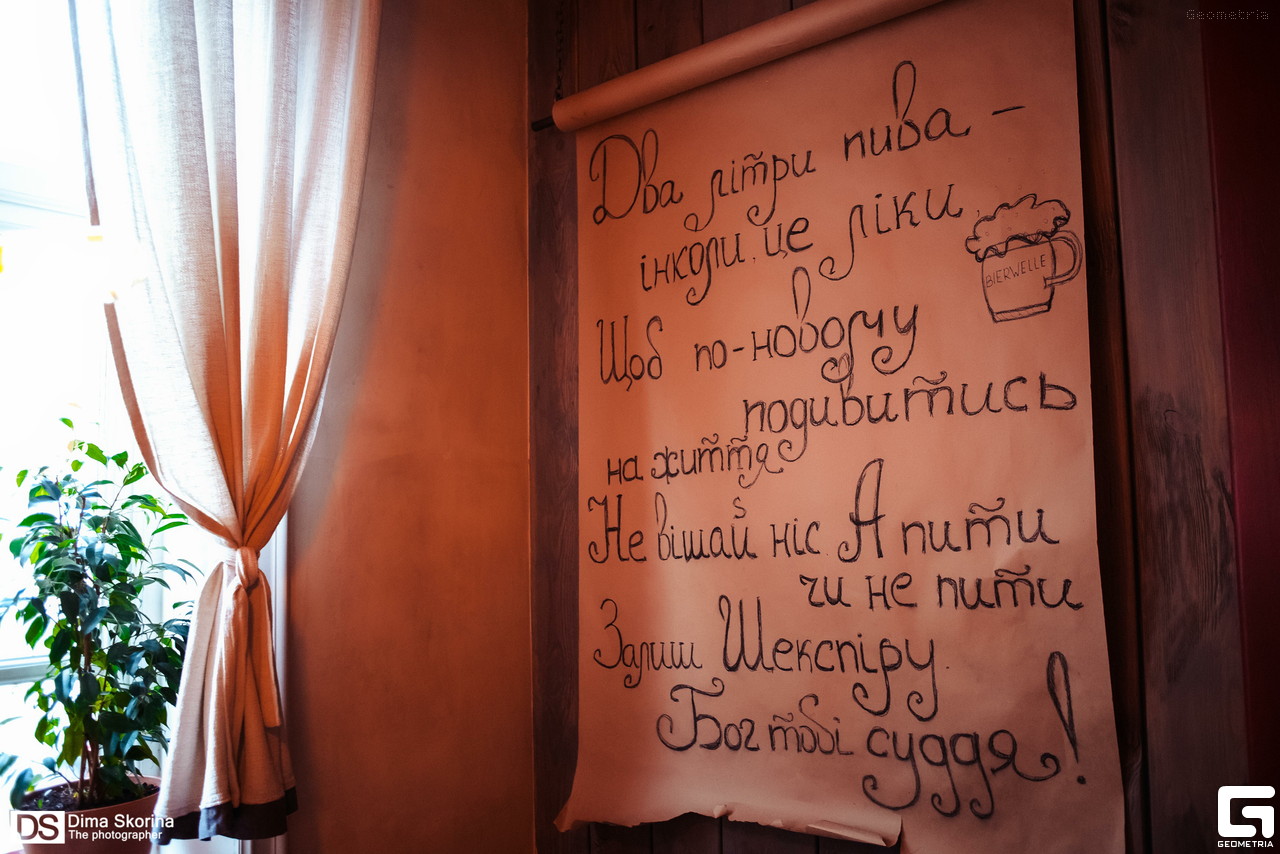 Geometria
Два літри пива -
інколи, це ліки,
BIERWELLE
Щоб по-новому
подивитись
на життя
Не вішай ніс. А пити
чи не пити
Залиш Шекспіру.
Бог тобі суддя!
DS Dima Skorina
The photographer
GEOMETRIA